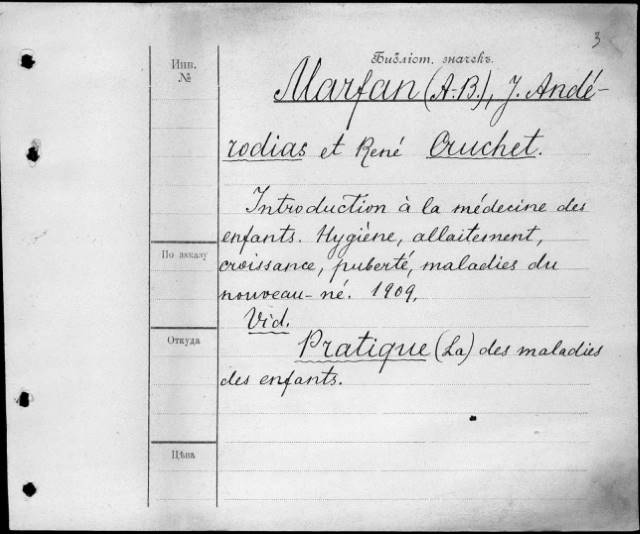 3
Библіот. значекъ.
Инв.
№
Marfan (A.-B.), J. Andé-
rodias et René Cruchet.
Introduction à la médecine des
enfants. Hygiène, allaitement,
По аккалу
croissance, puberté, maladies du
nouveau-né. 1909.
Vid.
Откуда
Pratique (La) des maladies
des enfants.
Цѣна